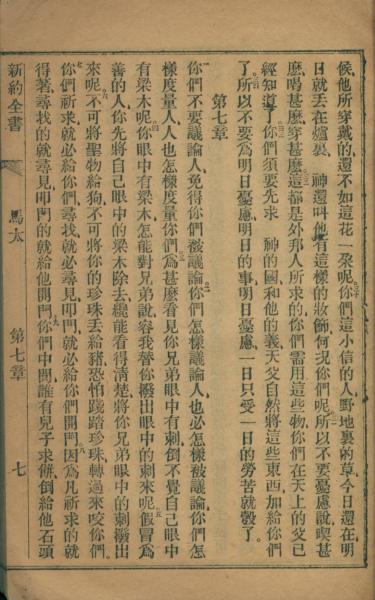 候、他所穿戴的、還不如這花一朶呢、你們這小信的人、野地裏的草、今日還在、明
日就丟在爐裏、 神還叫他有這樣的妝飾、何況你們呢、所以不要憂慮說、喫甚
麽、喝甚麽、穿甚麽、這都是外邦人所求的、你們需用這些物、你們在天上的父、已
經知道了、你們須要先求 神的國、和他的義、天父自然將這些東西、加給你們
了、所以不要爲明日憂慮、明日的事、明日憂慮、一日只受一日的勞苦就彀了。
第七章
你們不要議論人、免得你們被議論、你們怎樣議論人、也必怎樣被議論、你們怎
樣度量人、人也怎樣度量你們、爲甚麽看見你兄弟眼中有刺、倒不覺自己眼中
有梁木呢、你眼中有梁木、怎能對兄弟說、容我替你撥出眼中的刺來呢、假冒爲
善的人、你先將自己眼中的梁木除去、纔能看得清楚、將你兄弟眼中的刺撥出
來呢、不可將聖物給狗、不可將你的珍珠丟給豬、恐怕踐踏珍珠、轉過來咬你們。
你們祈求、就必給你們、尋找、就必尋見、叩門、就必給你們開門、因爲凡祈求的就
得著、尋找的就尋見、叩門的就給他開門、你們中間誰有兒子求餅、倒給他石頭
新約全書 馬太 第七章 七